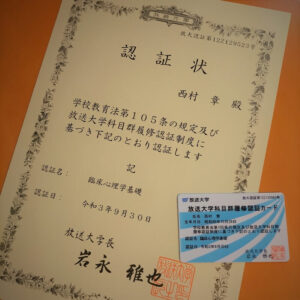 放大認証第122129523号
認証状
西村 章 殿
学校教育法第105条の規定及び
放送大学科目群履修認証制度に
基づき下記のとおり認証します
記
認証名: 臨床心理学基礎
認証日: 令和3年9月30日
放送大学長
岩永雅也
放送大学
放送大学科目群履修認証カード